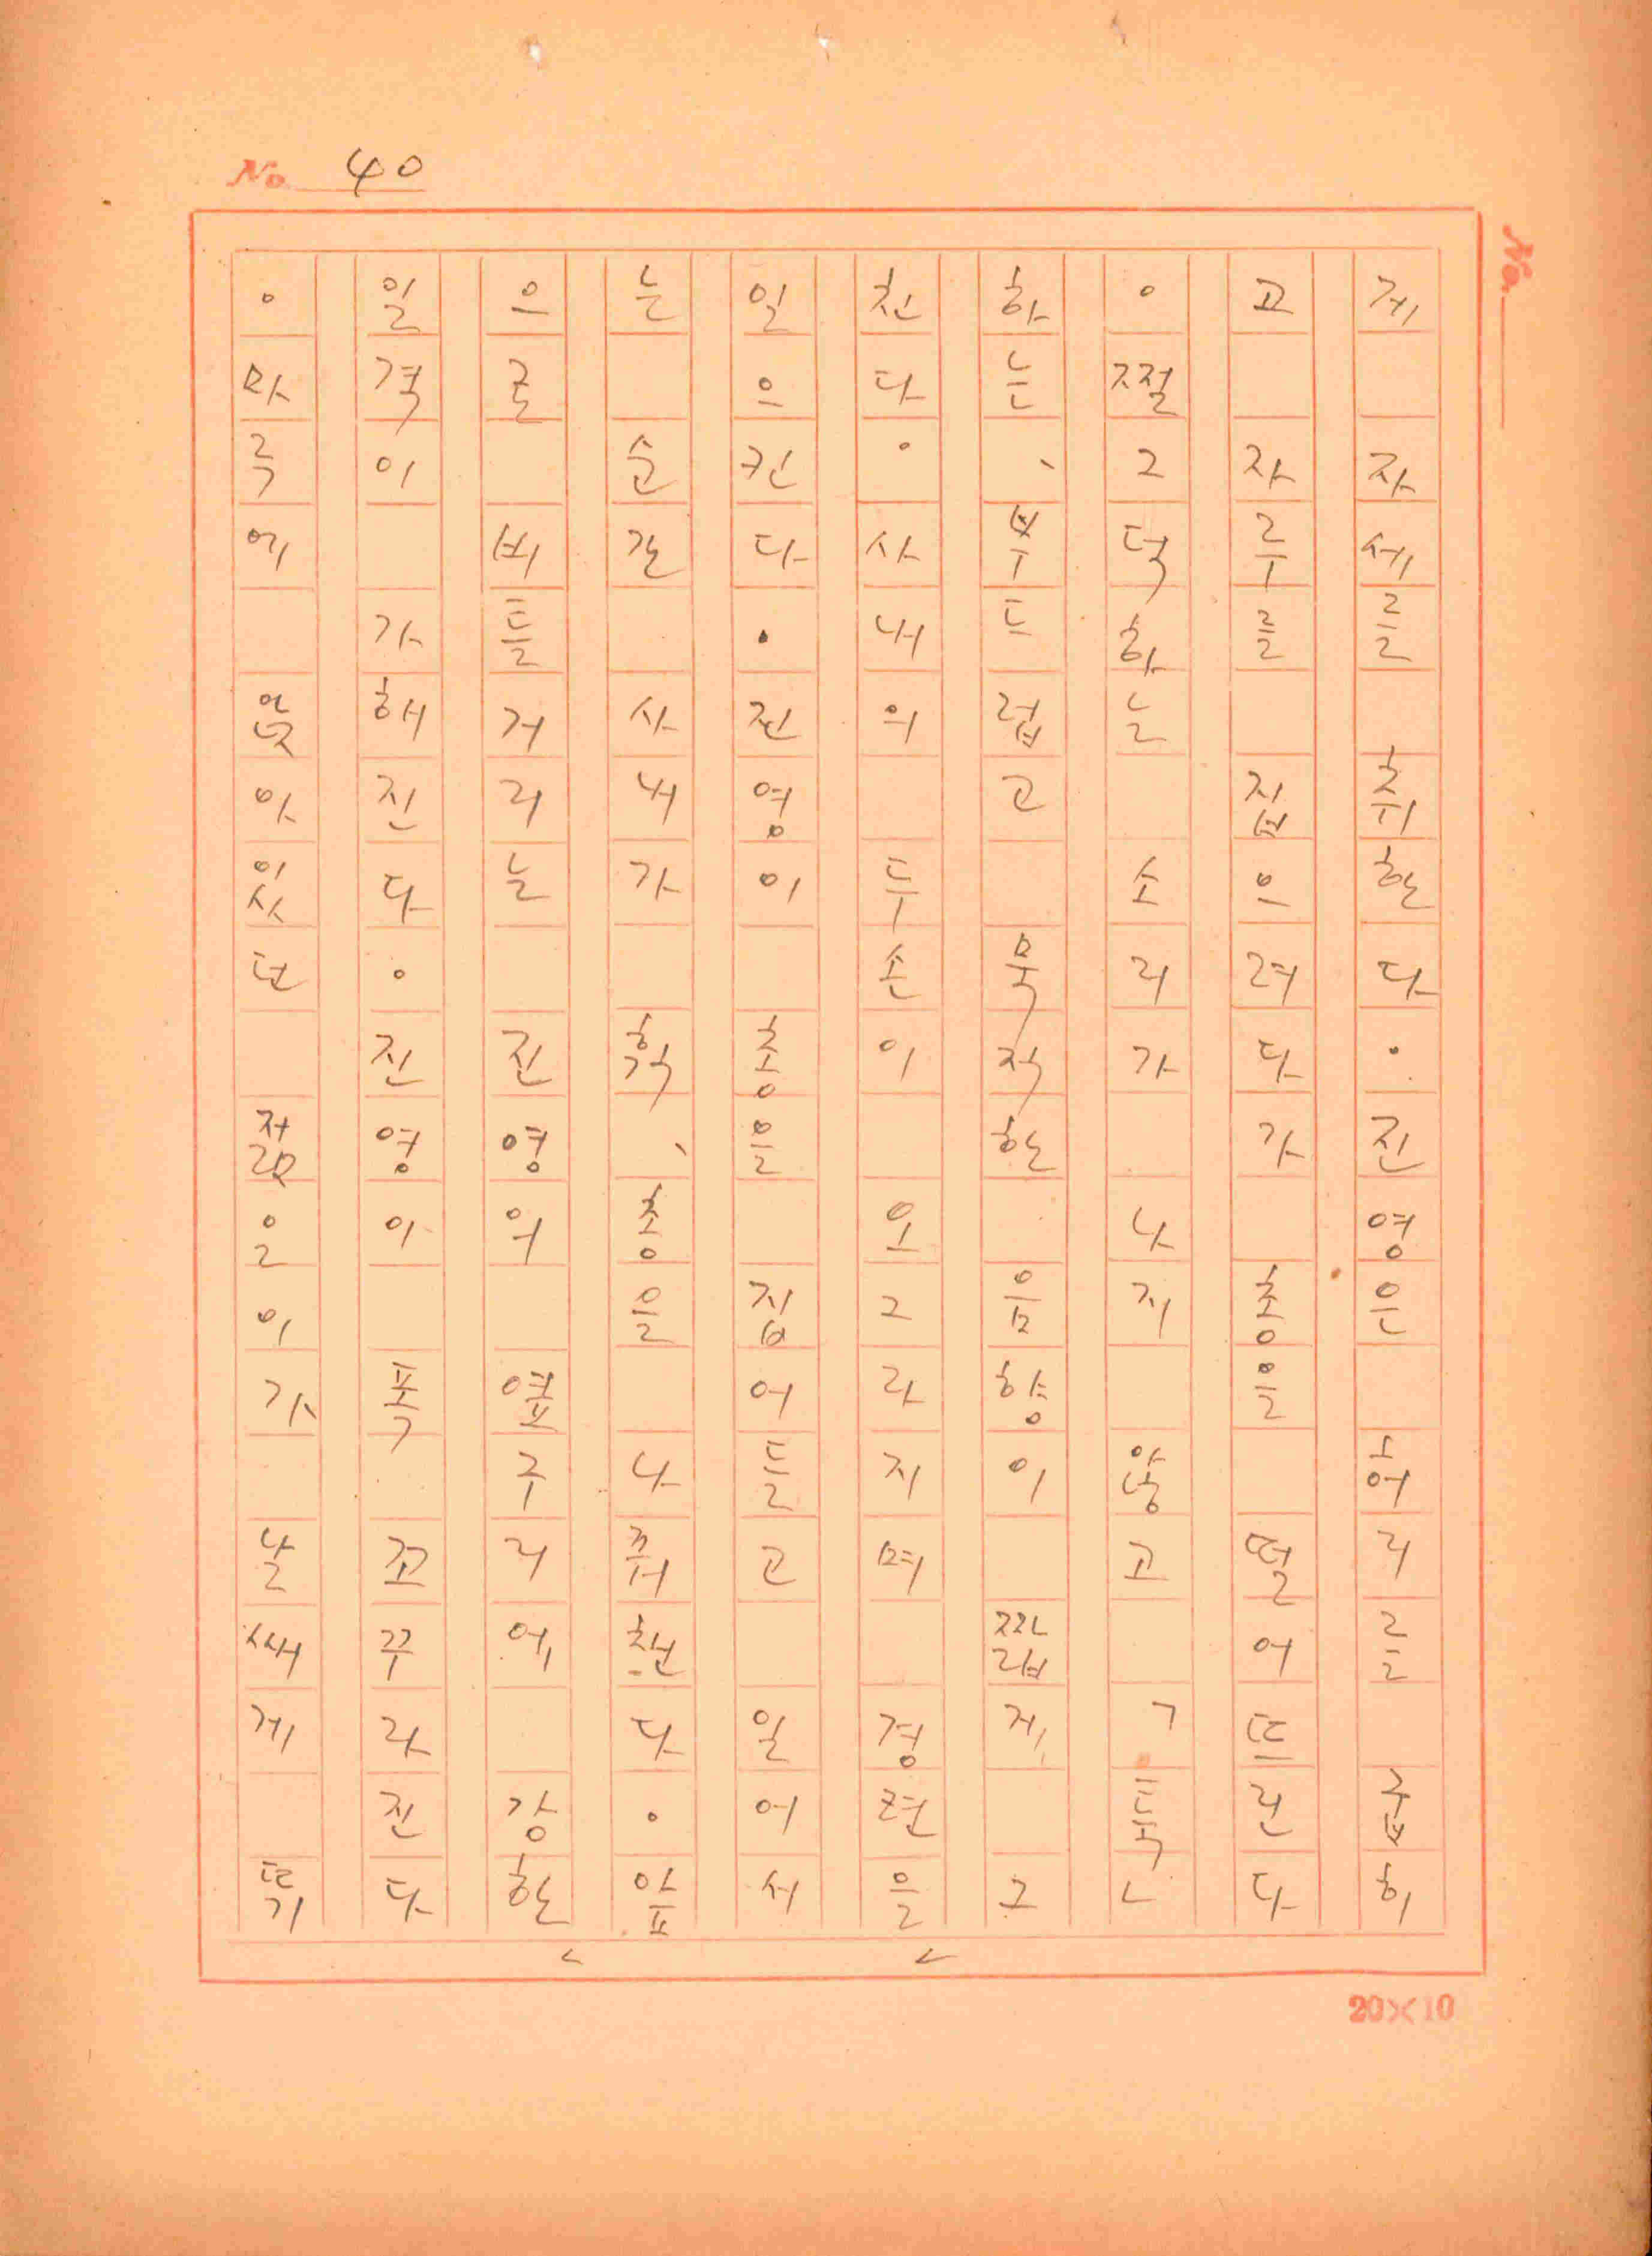 No. 40
No.
게 자세를 취한다。진영은 허리를 굽히
고 자루를 집으려다가 총을 떨어뜨린다
。쩔그덕하는 소리가 나지 않고 「둑」
하는、부드럽고 묵직한 음향이 짧게 그
친다。사내의 두손이 오그라지며 경련을
일으킨다。진영이 총을 집어들고 일어서
는 순간 사내가 확、총을 나꿔챈다。앞
으로 비틀거리는 진영의 옆구리에 강한
일격이 가해진다。진영이 폭 꼬꾸라진다
。마루에 앉아있던 젊은이가 날쌔게 뛰
20×10